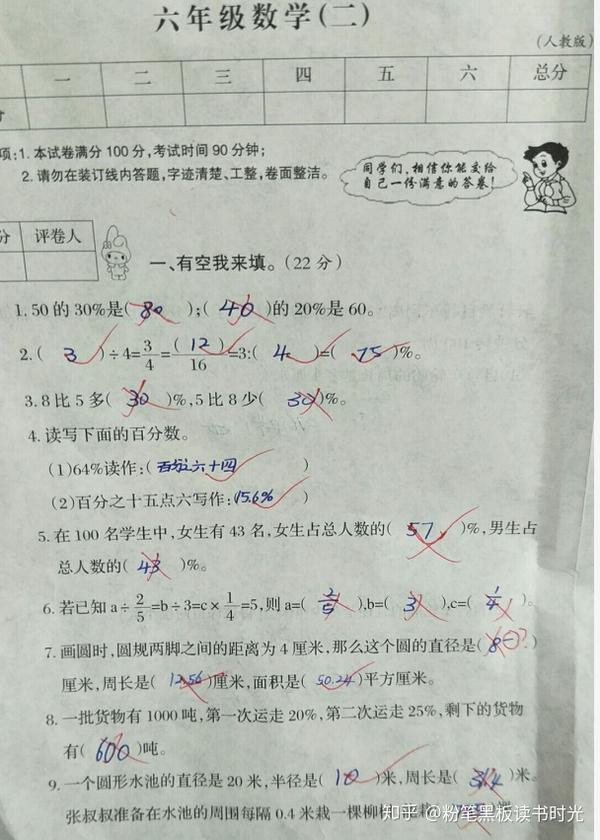 六年级数学(二)
(人教版)
一 二 三 四 五 六 总分
分
项:1.本试卷满分100分,考试时间90分钟;
2.请勿在装订线内答题,字迹清楚、工整,卷面整洁。
同学们,相信你能交给
自己一份满意的答卷!
分 评卷人
一、有空我来填。(22分)
1.50的30%是( 80 );( 40 )的20%是60。
2.( 3 )÷4=3/4=(12)/16=3:( 4 )=( 75 )%。
3.8比5多( 30 )%,5比8少( 30 )%。
4.读写下面的百分数。
(1)64%读作:(百分之六十四)
(2)百分之十五点六写作:(15.6%)
5.在100名学生中,女生有43名,女生占总人数的( 57 )%,男生占
总人数的( 43 )%。
6.若已知a÷2/5=b÷3=c×1/4=5,则a=( 2/5 ),b=( 3 ),c=( 1/4 )。
7.画圆时,圆规两脚之间的距离为4厘米,那么这个圆的直径是( 8 )
厘米,周长是( 12.56 )厘米,面积是( 50.24 )平方厘米。
8.一批货物有1000吨,第一次运走20%,第二次运走25%,剩下的货物
有( 600 )吨。
9.一个圆形水池的直径是20米,半径是( 10 )米,周长是( 314 )米。
张叔叔准备在水池的周围每隔0.4米栽一棵柳
知乎 @粉笔黑板读书时光